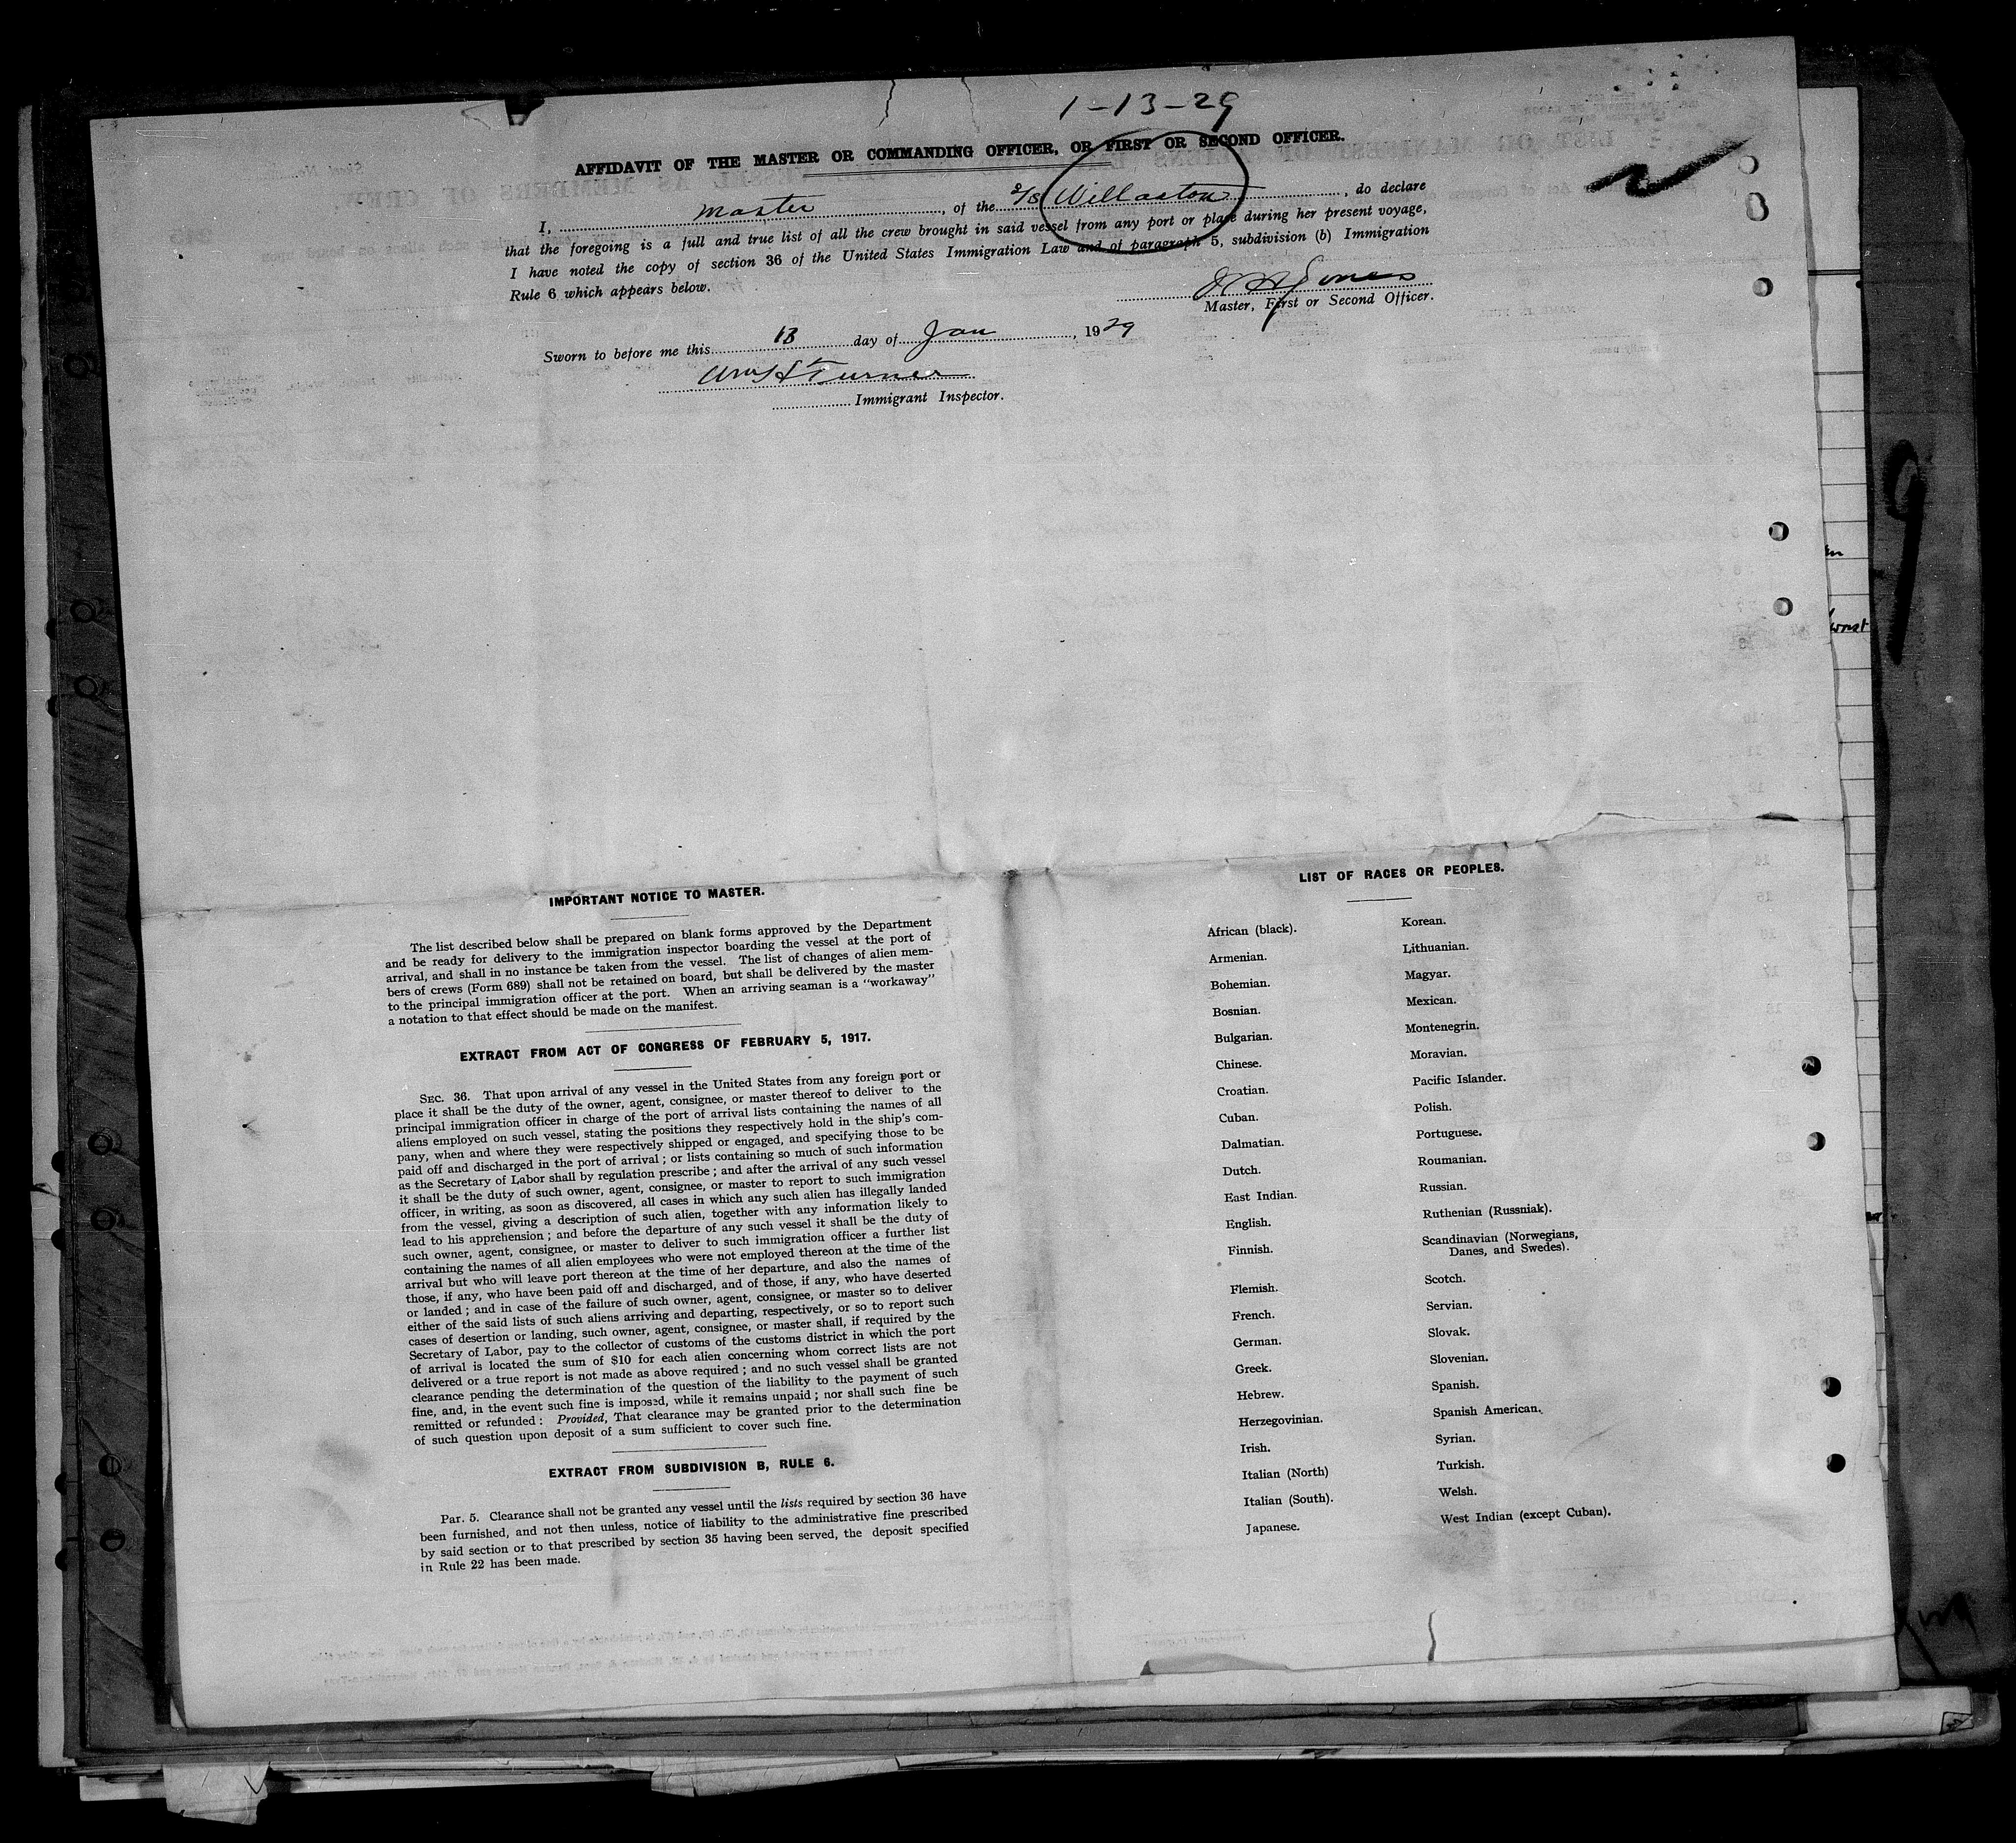 1-13-29
AFFIDAVIT OF THE MASTER OR COMMANDING OFFICER, OR FIRST OR SECOND OFFICER.
I, Master, of the S/S Willaston, do declare
that the foregoing is a full and true list of all the crew brought in said vessel from any port or place during her present voyage,
I have noted the copy of section 36 of the United States Immigration Law and of paragraph 5, subdivision (b) Immigration
Rule 6 which appears below.
Jones
Master, First or Second Officer.
Sworn to before me this 13 day of Jan, 1929
Wm H Turner
Immigrant Inspector.
IMPORTANT NOTICE TO MASTER.
The list described below shall be prepared on blank forms approved by the Department
and be ready for delivery to the immigration inspector boarding the vessel at the port of
arrival, and shall in no instance be taken from the vessel. The list of changes of alien mem-
bers of crews (Form 689) shall not be retained on board, but shall be delivered by the master
to the principal immigration officer at the port. When an arriving seaman is a "workaway"
a notation to that effect should be made on the manifest.
EXTRACT FROM ACT OF CONGRESS OF FEBRUARY 5, 1917.
SEC. 36. That upon arrival of any vessel in the United States from any foreign port or
place it shall be the duty of the owner, agent, consignee, or master thereof to deliver to the
principal immigration officer in charge of the port of arrival lists containing the names of all
aliens employed on such vessel, stating the positions they respectively hold in the ship's com-
pany, when and where they were respectively shipped or engaged, and specifying those to be
paid off and discharged in the port of arrival; or lists containing so much of such information
as the Secretary of Labor shall by regulation prescribe; and after the arrival of any such vessel
it shall be the duty of such owner, agent, consignee, or master to report to such immigration
officer, in writing, as soon as discovered, all cases in which any such alien has illegally landed
from the vessel, giving a description of such alien, together with any information likely to
lead to his apprehension; and before the departure of any such vessel it shall be the duty of
such owner, agent, consignee, or master to deliver to such immigration officer a further list
containing the names of all alien employees who were not employed thereon at the time of the
arrival but who will leave port thereon at the time of her departure, and also the names of
those, if any, who have been paid off and discharged, and of those, if any, who have deserted
or landed; and in case of the failure of such owner, agent, consignee, or master so to deliver
either of the said lists of such aliens arriving and departing, respectively, or so to report such
cases of desertion or landing, such owner, agent, consignee, or master shall, if required by the
Secretary of Labor, pay to the collector of customs of the customs district in which the port
of arrival is located the sum of $10 for each alien concerning whom correct lists are not
delivered or a true report is not made as above required; and no such vessel shall be granted
clearance pending the determination of the question of the liability to the payment of such
fine, and, in the event such fine is imposed, while it remains unpaid; nor shall such fine be
remitted or refunded: Provided, That clearance may be granted prior to the determination
of such question upon deposit of a sum sufficient to cover such fine.
EXTRACT FROM SUBDIVISION B, RULE 6.
Par. 5. Clearance shall not be granted any vessel until the lists required by section 36 have
been furnished, and not then unless, notice of liability to the administrative fine prescribed
by said section or to that prescribed by section 35 having been served, the deposit specified
in Rule 22 has been made.
LIST OF RACES OR PEOPLES.
African (black).
Armenian.
Bohemian.
Bosnian.
Bulgarian.
Chinese.
Croatian.
Cuban.
Dalmatian.
Dutch.
East Indian.
English.
Finnish.
Flemish.
French.
German.
Greek.
Hebrew.
Herzegovinian.
Irish.
Italian (North)
Italian (South).
Japanese.
Korean.
Lithuanian.
Magyar.
Mexican.
Montenegrin.
Moravian.
Pacific Islander.
Polish.
Portuguese.
Roumanian.
Russian.
Ruthenian (Russniak).
Scandinavian (Norwegians,
Danes, and Swedes).
Scotch.
Servian.
Slovak.
Slovenian.
Spanish.
Spanish American.
Syrian.
Turkish.
Welsh.
West Indian (except Cuban).
9